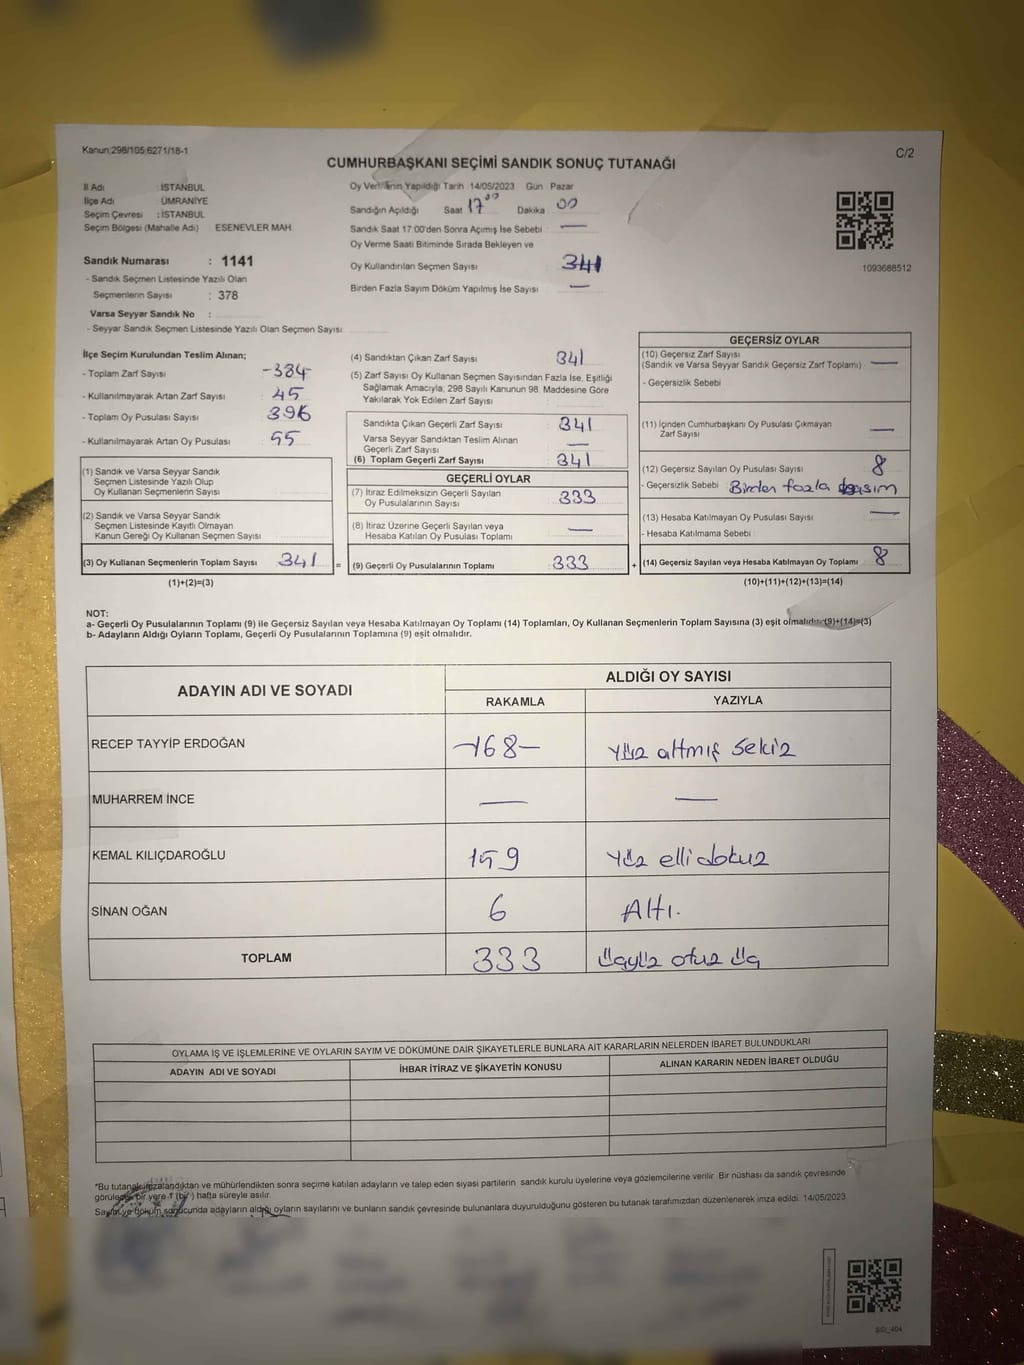 Kanun;298/105;6271/18-1
C/2
CUMHURBAŞKANI SEÇİMİ SANDIK SONUÇ TUTANAĞI
İl Adı : İSTANBUL
İlçe Adı ÜMRANİYE
Seçim Çevresi : İSTANBUL
Seçim Bölgesi (Mahalle Adı) ESENEVLER MAH.
Sandık Numarası : 1141
- Sandık Seçmen Listesinde Yazılı Olan
Seçmenlerin Sayısı : 378
Varsa Seyyar Sandık No :
- Seyyar Sandık Seçmen Listesinde Yazılı Olan Seçmen Sayısı:
Oy Yapıldığı Tarih 14/05/2023 Gün Pazar
Sandığın Açıldığı Saat 17⁰⁰ Dakika 00
Sandık Saat 17:00'den Sonra Açımış İse Sebebi —
Oy Verme Saati Bitiminde Sırada Bekleyen ve
Oy Kullandırılan Seçmen Sayısı 341
Birden Fazla Sayım Döküm Yapılmış İse Sayısı —
1093688512
İlçe Seçim Kurulundan Teslim Alınan;
- Toplam Zarf Sayısı -384-
- Kullanılmayarak Artan Zarf Sayısı : 45
- Toplam Oy Pusulası Sayısı : 396
- Kullanılmayarak Artan Oy Pusulası : 55
(1) Sandık ve Varsa Seyyar Sandık
Seçmen Listesinde Yazılı Olup
Oy Kullanan Seçmenlerin Sayısı
(2) Sandık ve Varsa Seyyar Sandık
Seçmen Listesinde Kayıtlı Olmayan
Kanun Gereği Oy Kullanan Seçmen Sayısı
(3) Oy Kullanan Seçmenlerin Toplam Sayısı 341 =
(1)+(2)=(3)
(4) Sandıktan Çıkan Zarf Sayısı 341
(5) Zarf Sayısı Oy Kullanan Seçmen Sayısından Fazla İse, Eşitliği
Sağlamak Amacıyla, 298 Sayılı Kanunun 98. Maddesine Göre
Yakılarak Yok Edilen Zarf Sayısı
Sandıkta Çıkan Geçerli Zarf Sayısı : 341
Varsa Seyyar Sandıktan Teslim Alınan
Geçerli Zarf Sayısı —
(6) Toplam Geçerli Zarf Sayısı : 341
GEÇERLİ OYLAR
(7) İtiraz Edilmeksizin Geçerli Sayılan
Oy Pusulalarının Sayısı : 333
(8) İtiraz Üzerine Geçerli Sayılan veya
Hesaba Katılan Oy Pusulası Toplamı —
(9) Geçerli Oy Pusulalarının Toplamı : 333 +
GEÇERSİZ OYLAR
(10) Geçersiz Zarf Sayısı
(Sandık ve Varsa Seyyar Sandık Geçersiz Zarf Toplamı) —
- Geçersizlik Sebebi
(11) İçinden Cumhurbaşkanı Oy Pusulası Çıkmayan
Zarf Sayısı —
(12) Geçersiz Sayılan Oy Pusulası Sayısı 8
- Geçersizlik Sebebi Birden fazla
(13) Hesaba Katılmayan Oy Pusulası Sayısı —
- Hesaba Katılmama Sebebi
(14) Geçersiz Sayılan veya Hesaba Katılmayan Oy Toplamı 8
(10)+(11)+(12)+(13)=(14)
NOT:
a- Geçerli Oy Pusulalarının Toplamı (9) ile Geçersiz Sayılan veya Hesaba Katılmayan Oy Toplamı (14) Toplamları, Oy Kullanan Seçmenlerin Toplam Sayısına (3) eşit olmalıdır.(9)+(14)=(3)
b- Adayların Aldığı Oyların Toplamı, Geçerli Oy Pusulalarının Toplamına (9) eşit olmalıdır.
ADAYIN ADI VE SOYADI
ALDIĞI OY SAYISI
RAKAMLA YAZIYLA
RECEP TAYYİP ERDOĞAN -168- Yüz altmış Sekiz
MUHARREM İNCE — —
KEMAL KILIÇDAROĞLU 159 Yüz elli dokuz
SİNAN OĞAN 6 Altı.
TOPLAM 333 üçyüz otuz üç
OYLAMA İŞ VE İŞLEMLERİNE VE OYLARIN SAYIM VE DÖKÜMÜNE DAİR ŞİKAYETLERLE BUNLARA AİT KARARLARIN NELERDEN İBARET BULUNDUKLARI
ADAYIN ADI VE SOYADI İHBAR İTİRAZ VE ŞİKAYETİN KONUSU ALINAN KARARIN NEDEN İBARET OLDUĞU
*Bu tutanak imzalandıktan ve mühürlendikten sonra seçime katılan adayların ve talep eden siyasi partilerin sandık kurulu üyelerine veya gözlemcilerine verilir. Bir nüshası da sandık çevresinde
görülecek bir yere 1 (bir) hafta süreyle asılır.
Sayım ve döküm sonucunda adayların aldığı oyların sayılarını ve bunların sandık çevresinde bulunanlara duyurulduğunu gösteren bu tutanak tarafımızdan düzenlenerek imza edildi. 14/05/2023